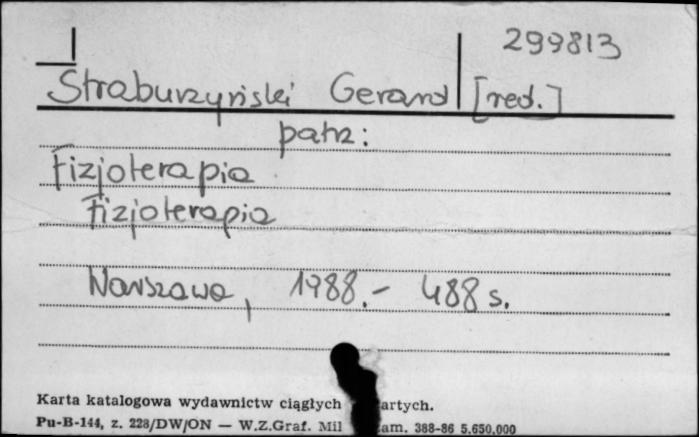 299813
Straburzyński Gerard [red.]
patrz:
Fizjoterapia
Fizjoterapia
Warszawa, 1988.- 488 s.
Karta katalogowa wydawnictw ciągłych artych.
Pu-B-144, z. 228/DW/ON — W.Z.Graf. Mil am. 388-86 5.650.000